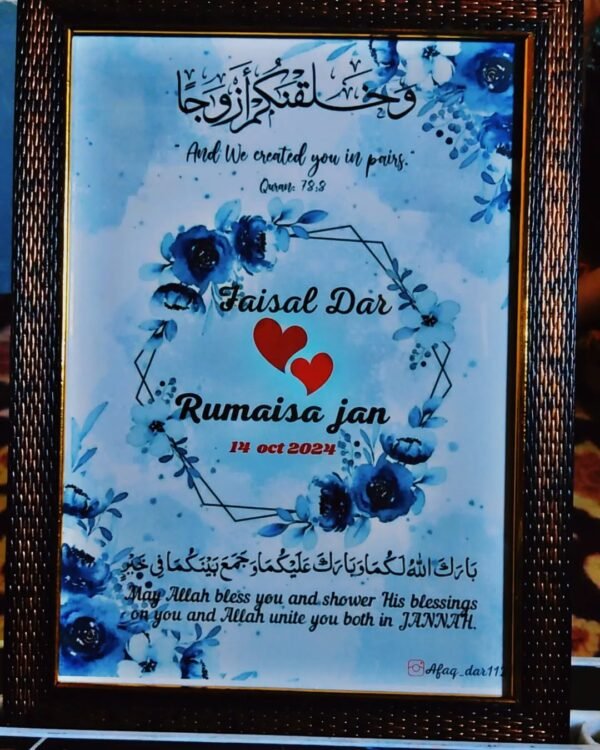 وَخَلَقْنَٰكُمْ أَزْوَٰجًا
"And We created you in pairs."
Quran: 78:8
Faisal Dar
Rumaisa jan
14 oct 2024
بَارَكَ اللهُ لَكُمَا وَبَارَكَ عَلَيْكُمَا وَجَمَعَ بَيْنَكُمَا فِي خَيْرٍ
May Allah bless you and shower His blessings
on you and Allah unite you both in JANNAH.